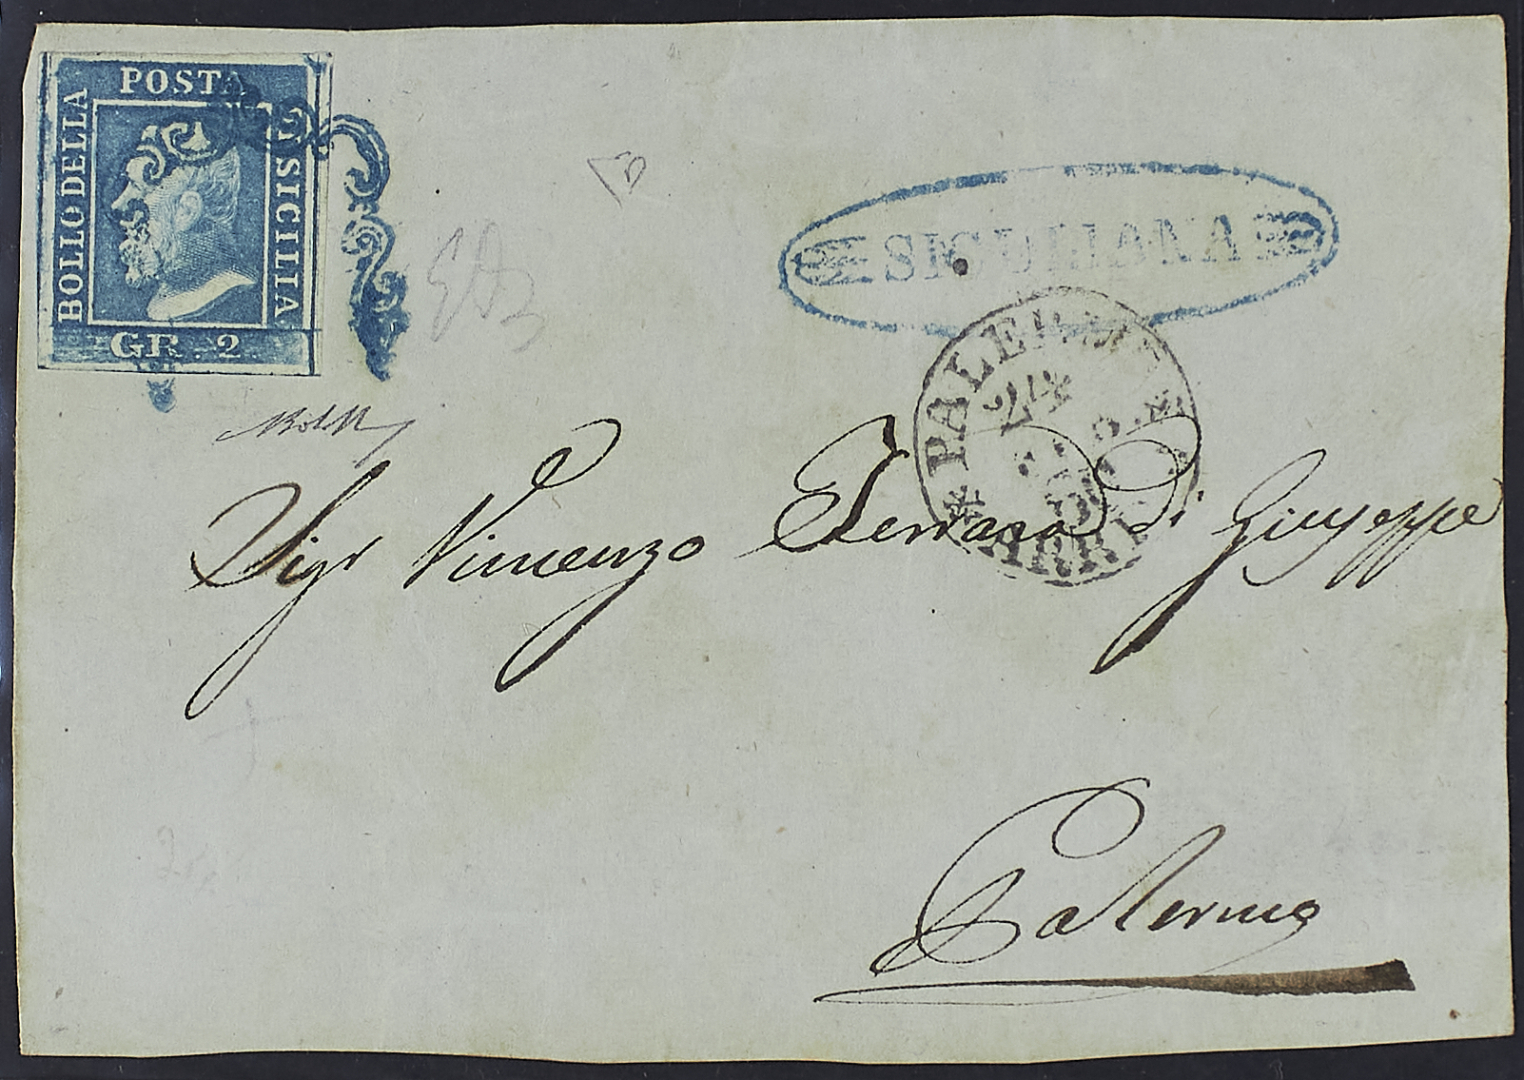 POSTA
BOLLO DELLA
DI SICILIA
GR. 2
SICULIANA
PALERMO
24
ARRIVO
Sigr Vincenzo Terrasa di Giuseppe
Palermo